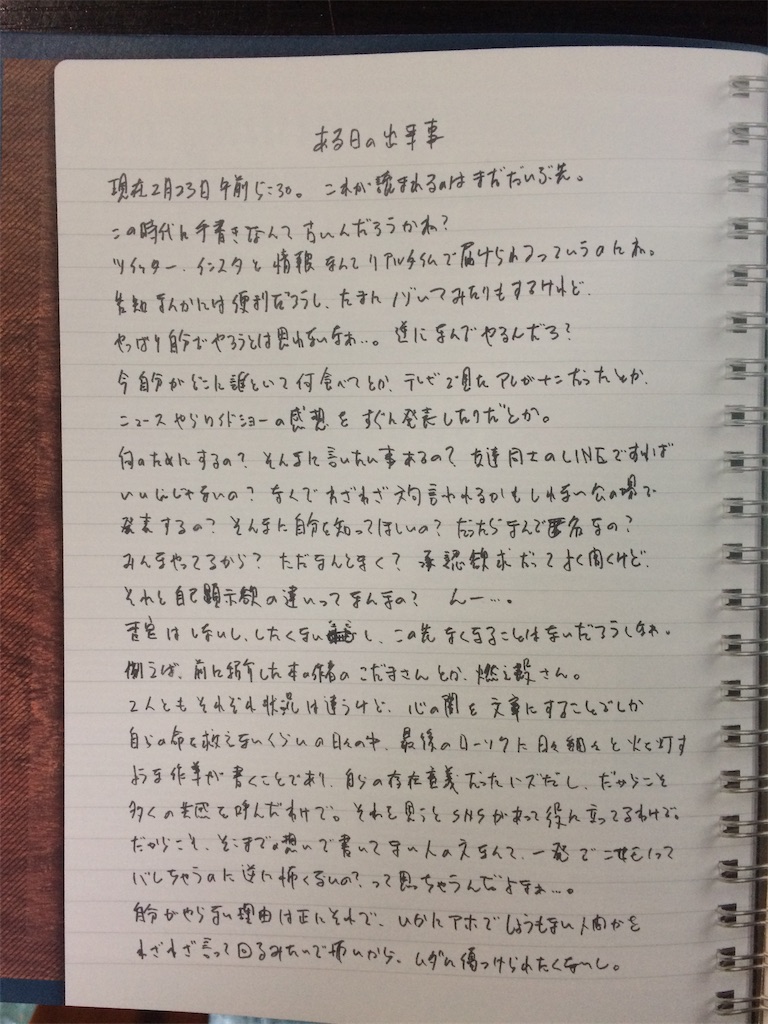 ある日の出来事
現在2月23日午前5:30。 これが読まれるのはまだだいぶ先。
この時代に手書きなんて古いんだろうかね?
ツイッター、インスタと情報なんてリアルタイムで届けられるっていうのにね。
告知なんかには便利だろうし、たまにノゾいてみたりもするけれど、
やっぱり自分でやろうとは思わないなぁ…。 逆になんでやるんだろ?
今自分がどこに誰といて何食べてとか、テレビで見たアレがナニだったとか、
ニュースやらワイドショーの感想をすぐに発表したりだとか。
何のためにするの? そんなに言いたい事あるの? 友達同士のLINEですれば
いいじゃないの? なんでわざわざ文句言われるかもしれない公の場で
発表するの? そんなに自分を知ってほしいの? だったらなんで匿名なの?
みんなやってるから? ただなんとなく? 承認欲求だってよく聞くけど、
それと自己顕示欲の違いってなんなの? んー…。
否定はしないし、したくないし、この先なくなることはないだろうしなぁ。
例えば、前に紹介した本の作者のこだまさんとか、燃え殻さん。
2人ともそれぞれ状況は違うけど、心の闇を文章にすることでしか
自らの命を救えないくらいの日々の中、最後のローソクに日々細々と火を灯す
ような作業が書くことであり、自らの存在意義だったハズだし、だからこそ
多くの共感を呼んだわけで。それを思うとSNSがあって役に立ってるわけで。
だからこそ、そこまでの想いで書いてない人のえなんて、一発で
バレちゃうのに逆に怖くないの? って思っちゃうんだよなぁ…。
自分がやらない理由は正にそれで、いかにアホでしょうもない人間かを
わざわざ言って回るみたいで怖いから、ムダに傷つけられたくないし。